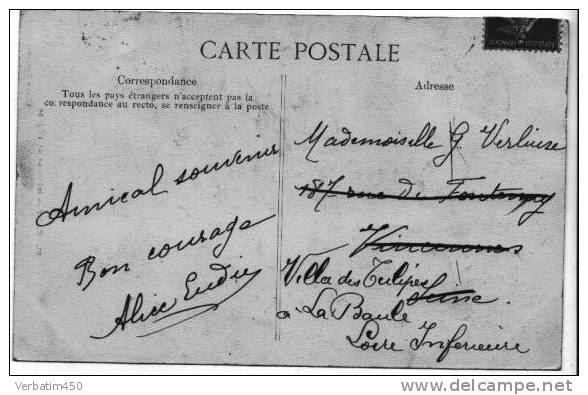 CARTE POSTALE
Correspondance
Tous les pays étrangers n'acceptent pas la
correspondance au recto, se renseigner à la poste
Adresse
Amical souvenir
Bon courage
Alice
Mademoiselle G. Verluise
187 rue de Fontenay
Vincennes
Seine.
Villa des Tulipes
à La Baule
Loire Inferieure
Verbatim450
delcampe.net